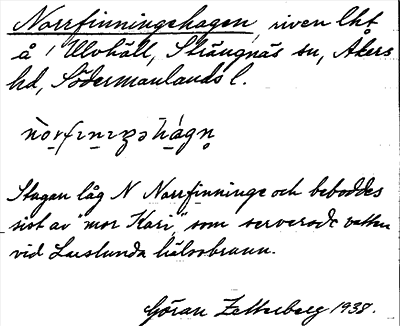 Norrfinningehagen, riven lht
å Ulvhäll, Strängnäs sn, Åkers
hd, Södermanlands l.
Stugan låg N Norrfinninge och beboddes
sist av "mor Kari", som serverade vatten
vid Luslunda hälsobrunn.
Göran Zetterberg 1938.